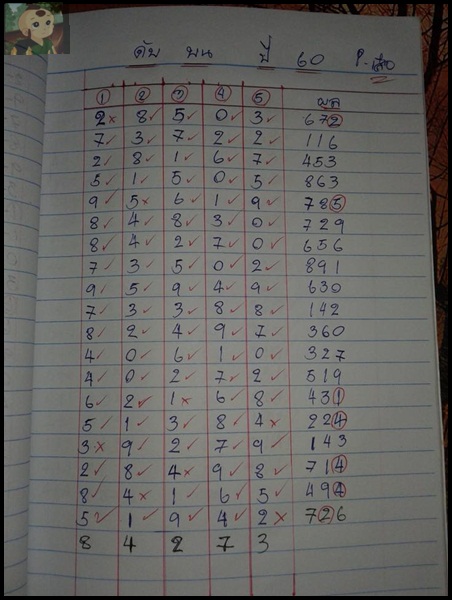 ดับ บน ปี 60 P.เสือ
① ② ③ ④ ⑤ ผล
2× 8✓ 5✓ 0✓ 3✓ 672
7✓ 3✓ 7✓ 2✓ 2✓ 116
2✓ 8✓ 1✓ 6✓ 7✓ 453
5✓ 1✓ 5✓ 0✓ 5✓ 863
9✓ 5× 6✓ 1✓ 9✓ 785
8✓ 4✓ 8✓ 3✓ 0✓ 729
8✓ 4✓ 2✓ 7✓ 0✓ 656
7✓ 3✓ 5✓ 0✓ 2✓ 891
9✓ 5✓ 9✓ 4✓ 9✓ 630
7✓ 3✓ 3✓ 8✓ 8✓ 142
8✓ 2✓ 4✓ 9✓ 7✓ 360
4✓ 0✓ 6✓ 1✓ 0✓ 327
4✓ 0✓ 2✓ 7✓ 2✓ 519
6✓ 2✓ 1× 6✓ 8✓ 431
5✓ 1✓ 3✓ 8✓ 4× 224
3× 9✓ 2✓ 7✓ 9✓ 143
2✓ 8✓ 4× 9✓ 8✓ 714
8✓ 4× 1✓ 6✓ 5✓ 494
5✓ 1✓ 9✓ 4✓ 2× 726
8 4 2 7 3